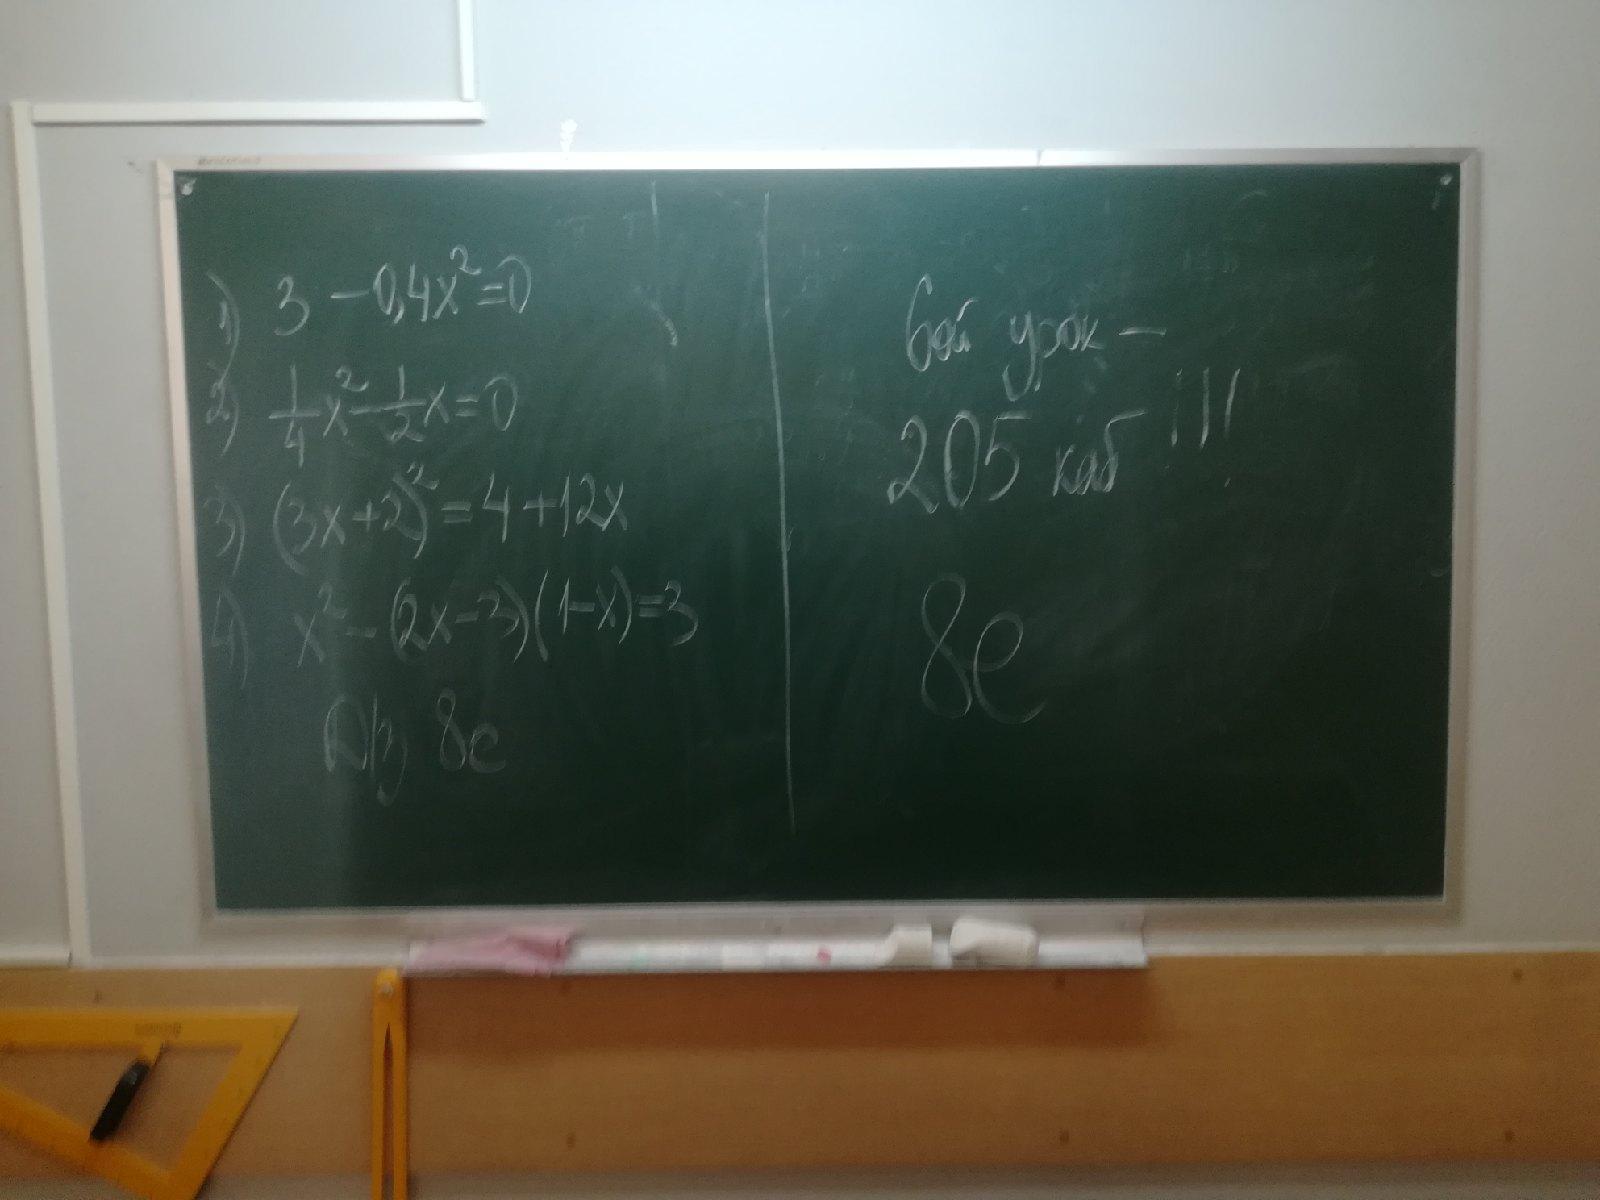 1) 3 - 0,4x² = 0
2) 1/4 x² - 1/2 x = 0
3) (3x + 2)² = 4 + 12x
4) x² - (2x - 3)(1 - x) = 3
Д/з 8е
6ой урок -
205 каб !!!
8е